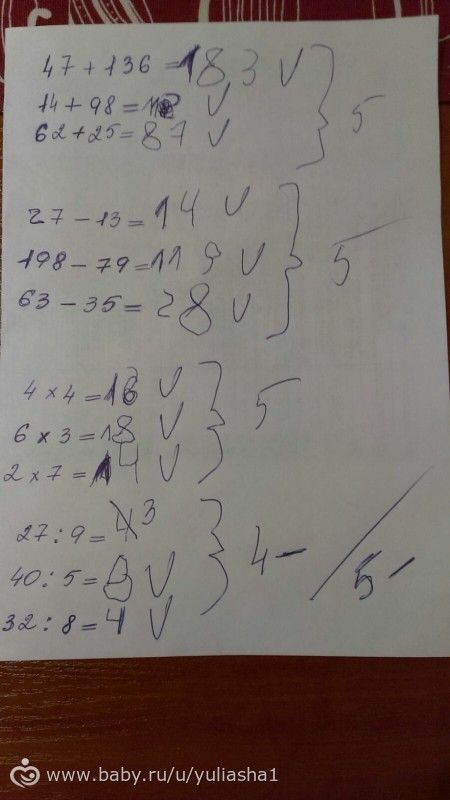 47 + 136 = 183 V
14 + 98 = V
62 + 25 = 87 V
} 5
27 - 13 = 14 V
198 - 79 = 119 V
63 - 35 = 28 V
} 5
4 × 4 = 16 V
6 × 3 = 18 V
2 × 7 = 14 V
} 5
27 : 9 = 4 3
40 : 5 = 8 V
32 : 8 = 4 V
} 4- / 5-
www.baby.ru/u/yuliasha1